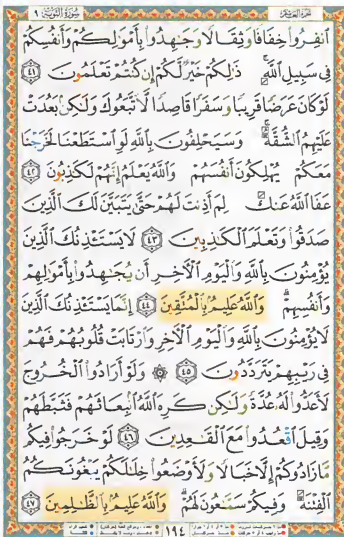 سورة التوبة ٩
الجزء العاشر
ٱنفِرُوا۟ خِفَافًا وَثِقَالًا وَجَٰهِدُوا۟ بِأَمْوَٰلِكُمْ وَأَنفُسِكُمْ
فِى سَبِيلِ ٱللَّهِ ۚ ذَٰلِكُمْ خَيْرٌ لَّكُمْ إِن كُنتُمْ تَعْلَمُونَ ٤١
لَوْ كَانَ عَرَضًا قَرِيبًا وَسَفَرًا قَاصِدًا لَّٱتَّبَعُوكَ وَلَٰكِنۢ بَعُدَتْ
عَلَيْهِمُ ٱلشُّقَّةُ ۚ وَسَيَحْلِفُونَ بِٱللَّهِ لَوِ ٱسْتَطَعْنَا لَخَرَجْنَا
مَعَكُمْ يُهْلِكُونَ أَنفُسَهُمْ وَٱللَّهُ يَعْلَمُ إِنَّهُمْ لَكَٰذِبُونَ ٤٢
عَفَا ٱللَّهُ عَنكَ لِمَ أَذِنتَ لَهُمْ حَتَّىٰ يَتَبَيَّنَ لَكَ ٱلَّذِينَ
صَدَقُوا۟ وَتَعْلَمَ ٱلْكَٰذِبِينَ ٤٣ لَا يَسْتَـْٔذِنُكَ ٱلَّذِينَ
يُؤْمِنُونَ بِٱللَّهِ وَٱلْيَوْمِ ٱلْءَاخِرِ أَن يُجَٰهِدُوا۟ بِأَمْوَٰلِهِمْ
وَأَنفُسِهِمْ ۗ وَٱللَّهُ عَلِيمٌۢ بِٱلْمُتَّقِينَ ٤٤ إِنَّمَا يَسْتَـْٔذِنُكَ ٱلَّذِينَ
لَا يُؤْمِنُونَ بِٱللَّهِ وَٱلْيَوْمِ ٱلْءَاخِرِ وَٱرْتَابَتْ قُلُوبُهُمْ فَهُمْ
فِى رَيْبِهِمْ يَتَرَدَّدُونَ ٤٥ ۞ وَلَوْ أَرَادُوا۟ ٱلْخُرُوجَ
لَأَعَدُّوا۟ لَهُۥ عُدَّةً وَلَٰكِن كَرِهَ ٱللَّهُ ٱنۢبِعَاثَهُمْ فَثَبَّطَهُمْ
وَقِيلَ ٱقْعُدُوا۟ مَعَ ٱلْقَٰعِدِينَ ٤٦ لَوْ خَرَجُوا۟ فِيكُم
مَّا زَادُوكُمْ إِلَّا خَبَالًا وَلَأَوْضَعُوا۟ خِلَٰلَكُمْ يَبْغُونَكُمُ
ٱلْفِتْنَةَ وَفِيكُمْ سَمَّٰعُونَ لَهُمْ ۗ وَٱللَّهُ عَلِيمٌۢ بِٱلظَّٰلِمِينَ ٤٧
١٩٤